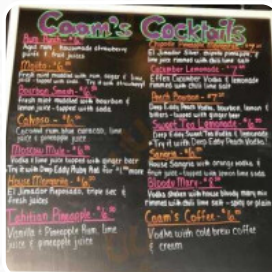 Coam's Cocktails
Rum Punch
Aged rum, housemade strawberry
puree & fruit juices
Mojito
Fresh mint muddled with rum, sugar & lime
juice - topped with soda. Try it with strawberry!
Bourbon Smash - $6
Fresh mint muddled with bourbon &
lemon juice - topped with soda
Calypso - $6
Coconut rum, blue curacao, lime
juice & pineapple juice
Moscow Mule - $6
Vodka & lime juice topped with ginger beer
Try it with Deep Eddy Ruby Red for $1 more
House Margarita
El Jimador Reposado, triple sec &
fresh juices
Tahitian Pineapple - $6
Vanilla & Pineapple Rum, lime
juice & pineapple juice
El Jimador Silver
lime juice rimmed with chili lime salt
Cucumber Lemonade
Effen Cucumber Vodka & lemonade
rimmed with chili lime salt
Peach Bourbon
Deep Eddy Peach Vodka, bourbon, lemon &
bitters - topped with ginger beer
Sweet Tea Lemonade - $6
Deep Eddy Sweet Tea Vodka & lemonade
Try it with Deep Eddy Peach Vodka!
Sangria - $6
House Sangria with orange vodka &
fruit juice - topped with lemon lime soda
Bloody Mary - $8
Vodka shaken with house bloody mary mix
rimmed with chili lime salt - spicy or plain
Coam's Coffee - $6
Vodka with cold brew coffee
& cream